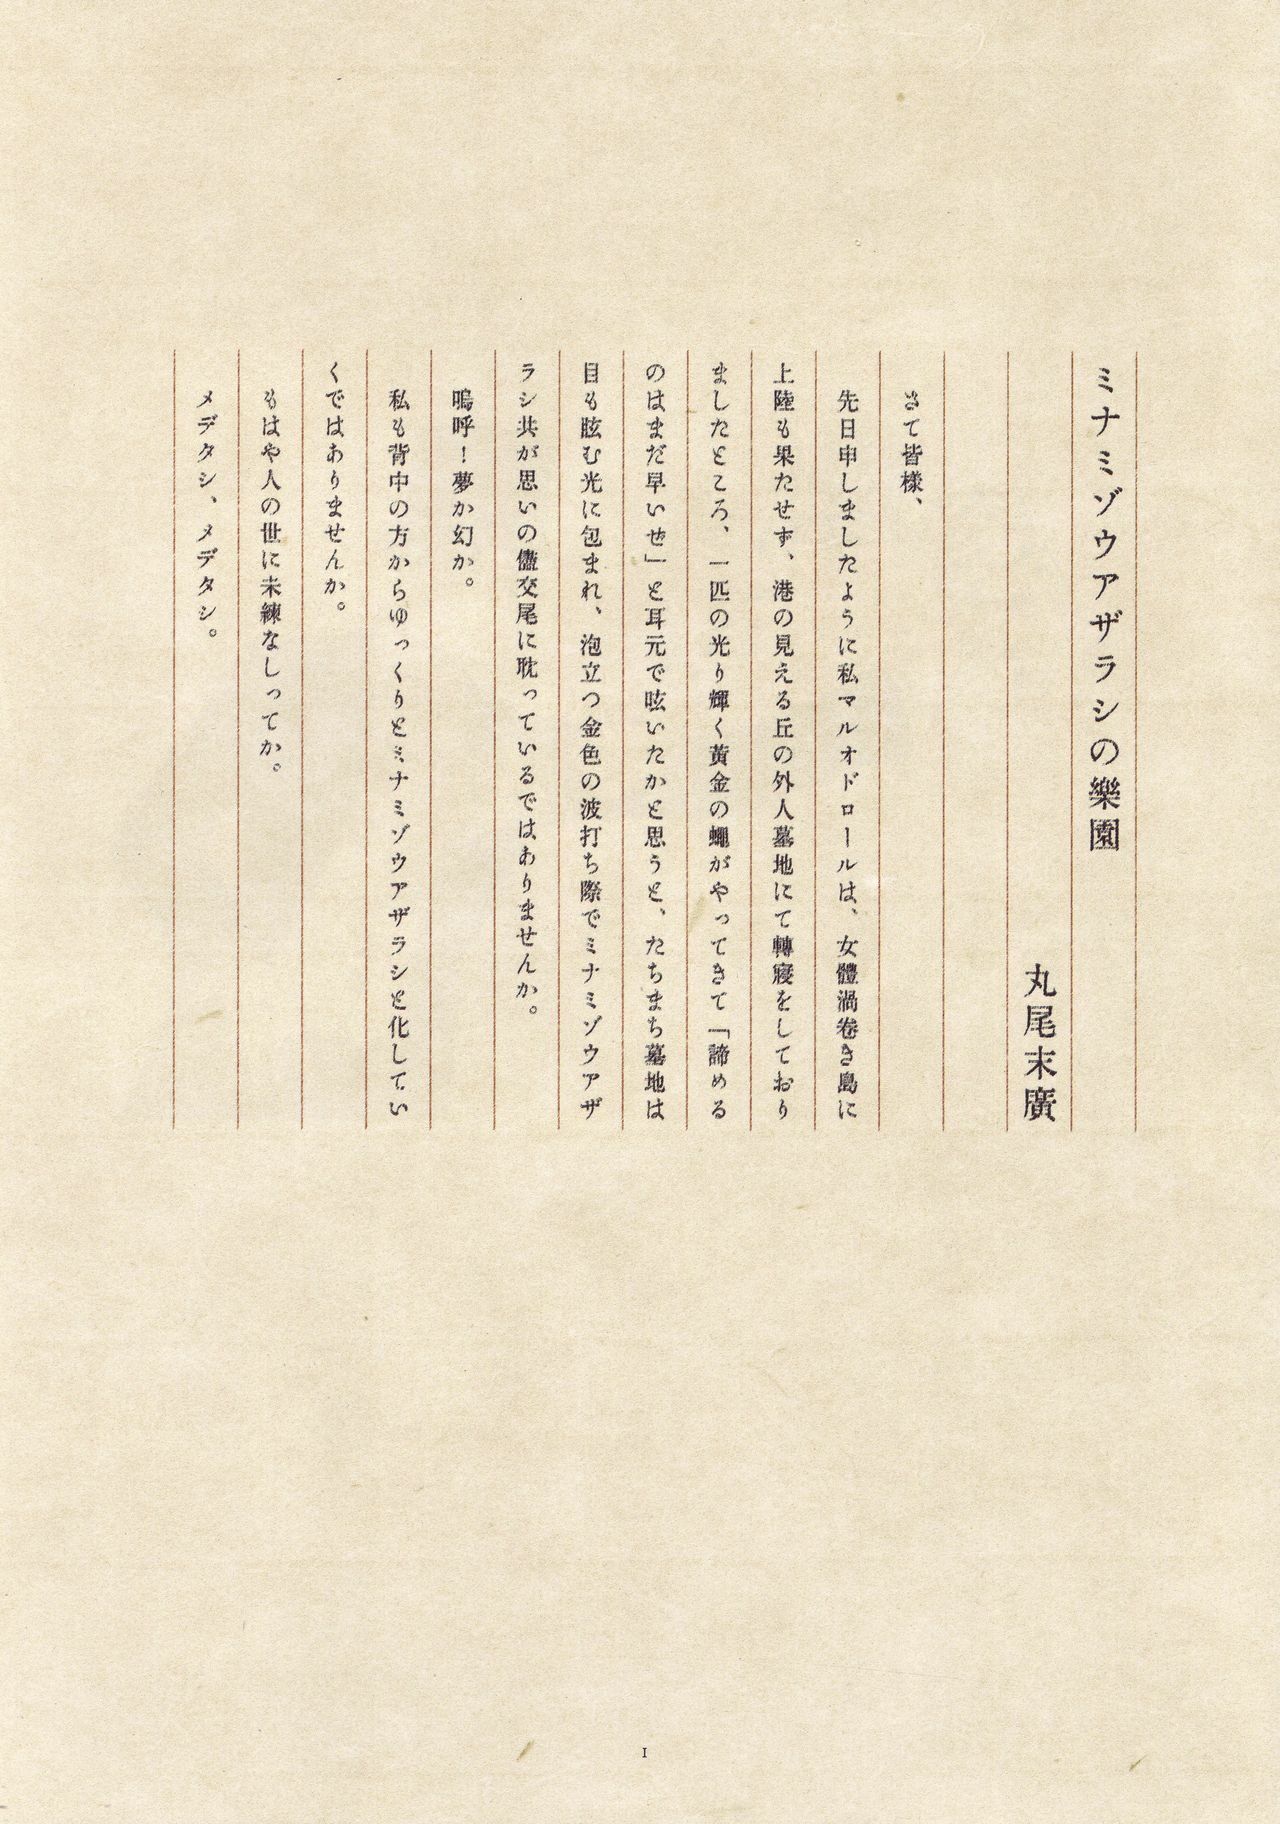 ミナミゾウアザラシの樂園
丸尾末廣
さて皆樣、
先日申しましたように私マルオドロールは、女體渦卷き島に
上陸も果たせず、港の見える丘の外人墓地にて轉寢をしており
ましたところ、一匹の光り輝く黃金の蠅がやってきて「諦める
のはまだ早いぜ」と耳元で呟いたかと思うと、たちまち墓地は
目も眩む光に包まれ、泡立つ金色の波打ち際でミナミゾウアザ
ラシ共が思いの儘交尾に耽っているではありませんか。
嗚呼！夢か幻か。
私も背中の方からゆっくりとミナミゾウアザラシと化してい
くではありませんか。
もはや人の世に未練なしってか。
メデタシ、メデタシ。
I